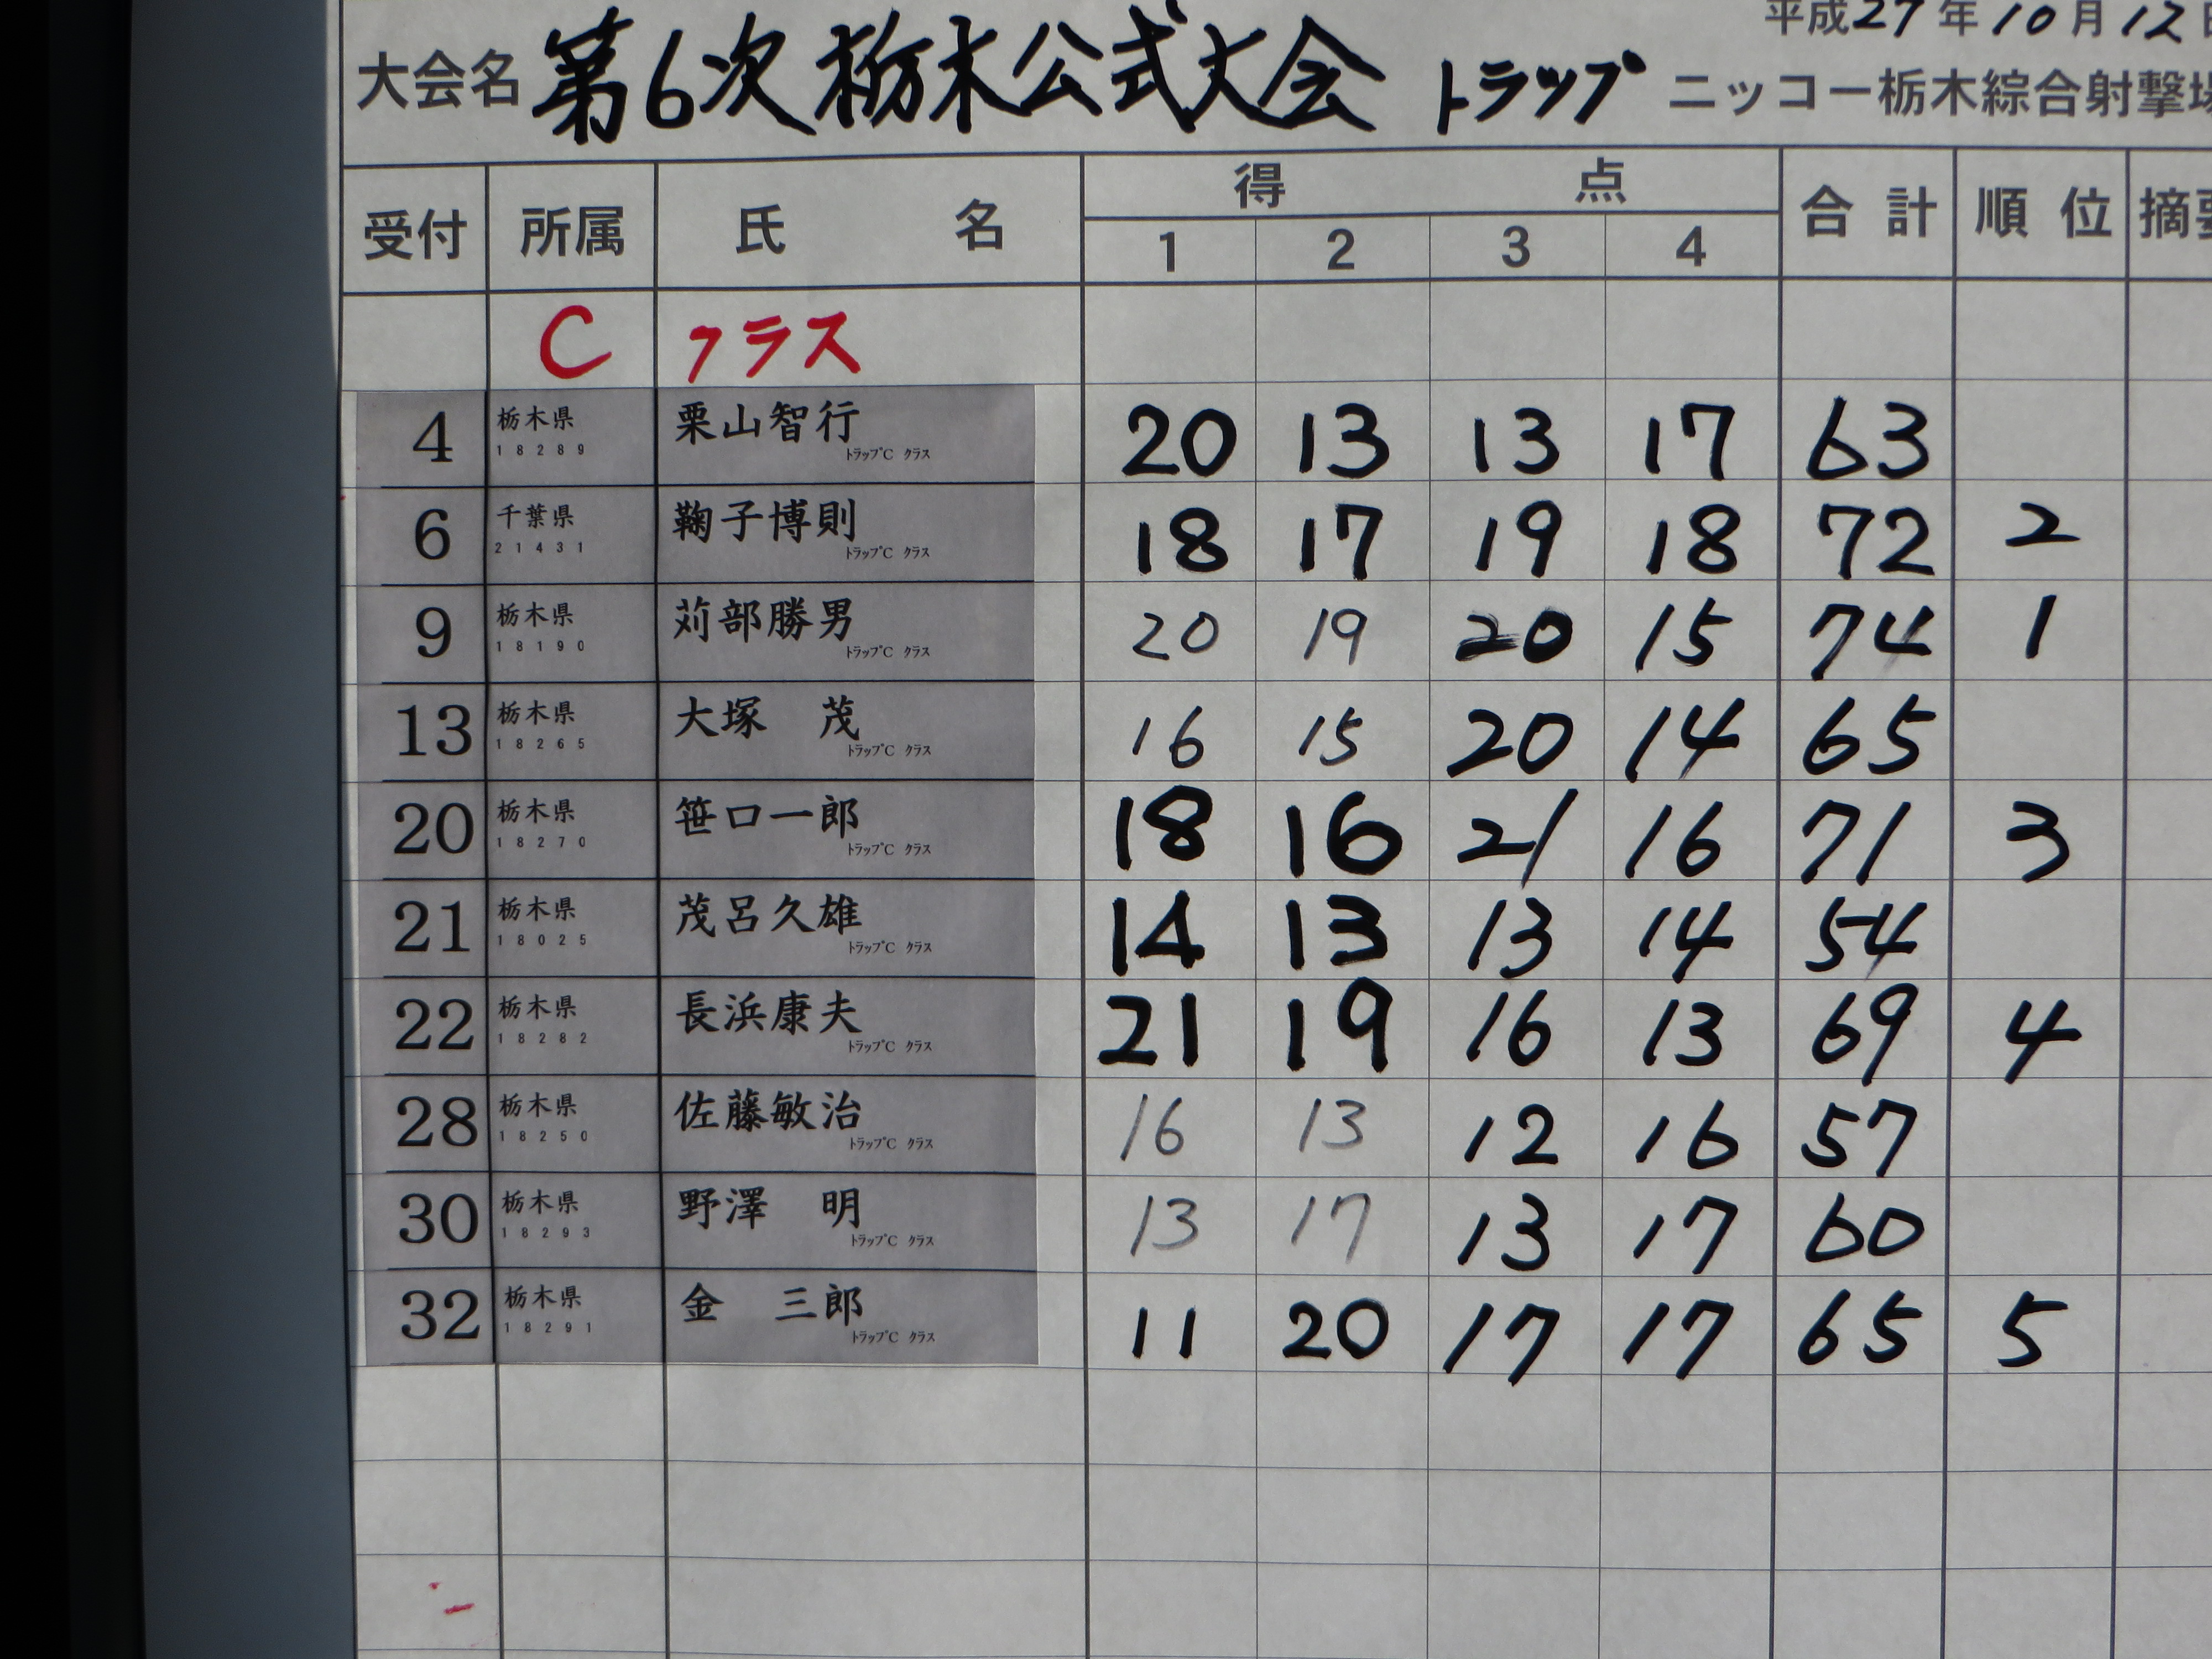 平成27年10月12日
大会名 第6次栃木公式大会 トラップ ニッコー栃木綜合射撃場
受付 所属 氏名 得点 合計 順位 摘要
1 2 3 4
C クラス
4 栃木県 栗山智行 20 13 13 17 63
18289 トラップC クラス
6 千葉県 鞠子博則 18 17 19 18 72 2
21431 トラップC クラス
9 栃木県 苅部勝男 20 19 20 15 74 1
18190 トラップC クラス
13 栃木県 大塚 茂 16 15 20 14 65
18265 トラップC クラス
20 栃木県 笹口一郎 18 16 21 16 71 3
18270 トラップC クラス
21 栃木県 茂呂久雄 14 13 13 14 54
18025 トラップC クラス
22 栃木県 長浜康夫 21 19 16 13 69 4
18282 トラップC クラス
28 栃木県 佐藤敏治 16 13 12 16 57
18250 トラップC クラス
30 栃木県 野澤 明 13 17 13 17 60
18293 トラップC クラス
32 栃木県 金 三郎 11 20 17 17 65 5
18291 トラップC クラス